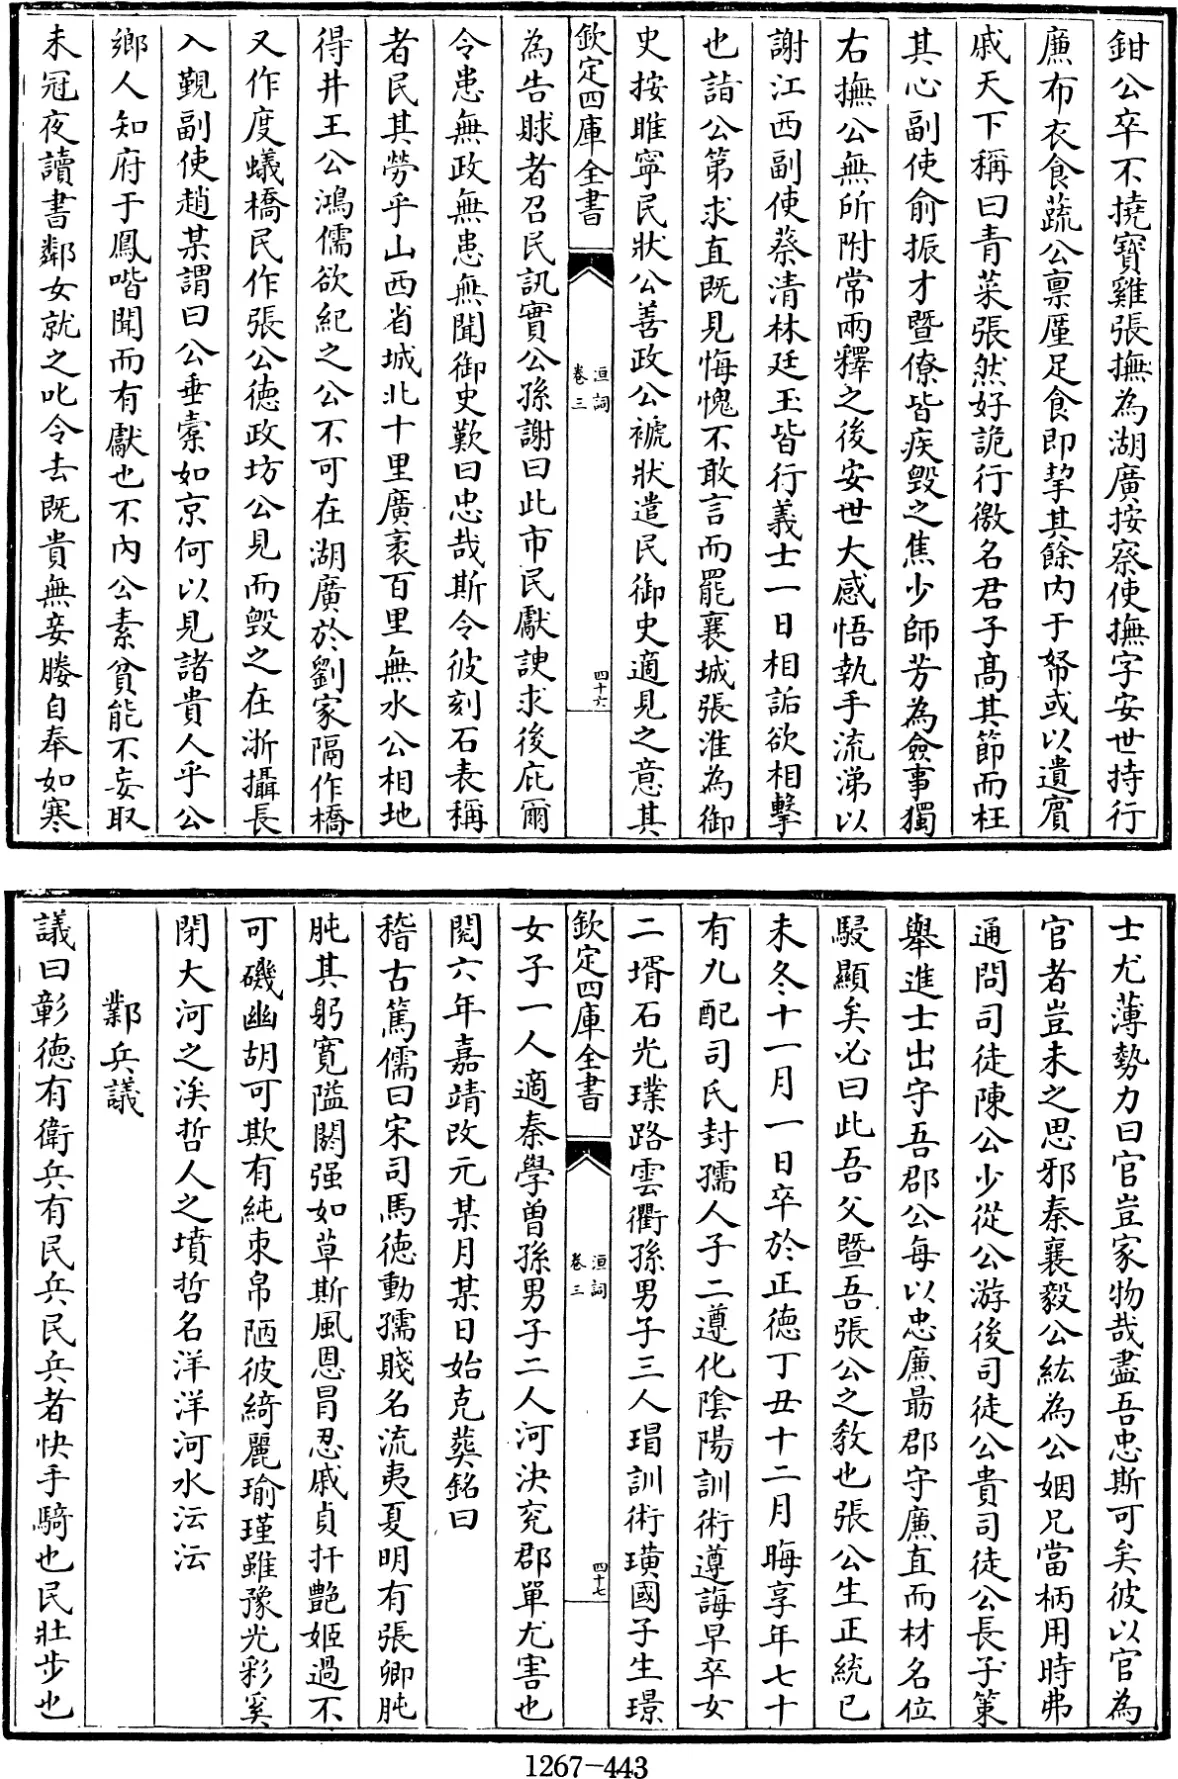 鉗公卒不撓寶雞張撫為湖廣按察使撫字安世持行
廉布衣食蔬公禀厪足食即挈其餘内于帑或以遺賓
戚天下稱曰青菜張然好詭行徼名君子髙其節而枉
其心副使俞振才暨僚皆疾毁之焦少師芳為僉事獨
右撫公無所附常兩釋之後安世大感悟執手流涕以
謝江西副使蔡清林廷玉皆行義士一日相詬欲相擊
也詣公第求直既見悔愧不敢言而罷襄城張淮為御
史按睢寧民狀公善政公褫狀遣民御史適見之意其
欽定四庫全書
洹詞
卷三
四十六
為告賕者召民訊實公孫謝曰此市民獻諛求後庇爾
令患無政無患無聞御史歎曰忠哉斯令彼刻石表稱
者民其勞乎山西省城北十里廣袤百里無水公相地
得井王公鴻儒欲紀之公不可在湖廣於劉家隔作橋
又作度蟻橋民作張公德政坊公見而毁之在浙攝長
入覲副使趙某謂曰公垂橐如京何以見諸貴人乎公
鄉人知府于鳳喈聞而有獻也不内公素貧能不妄取
未冠夜讀書鄰女就之叱令去既貴無妾媵自奉如寒
士尤薄勢力曰官豈家物哉盡吾忠斯可矣彼以官為
官者豈未之思邪秦襄毅公紘為公姻兄當柄用時弗
通問司徒陳公少從公游後司徒公貴司徒公長子策
舉進士出守吾郡公每以忠廉朂郡守廉直而材名位
駸顯矣必曰此吾父暨吾張公之敎也張公生正統已
未冬十一月一日卒於正德丁丑十二月晦享年七十
有九配司氏封孺人子二遵化陰陽訓術遵誨早卒女
二壻石光璞路雲衢孫男子三人瑁訓術璜國子生璟
欽定四庫全書
洹詞
卷三
四十七
女子一人適秦學曽孫男子二人河決兖郡單尤害也
閱六年嘉靖改元某月某日始克葬銘曰
稽古篤儒曰宋司馬德動孺賤名流夷夏明有張卿肫
肫其躬寛隘闕强如草斯風恩冐忍戚貞扞艶姬過不
可磯幽胡可欺有純束帛陋彼綺麗瑜瑾雖豫光彩奚
閉大河之涘哲人之墳哲名洋洋河水沄沄
鄴兵議
議曰彰德有衛兵有民兵民兵者快手騎也民壯步也
1267-443